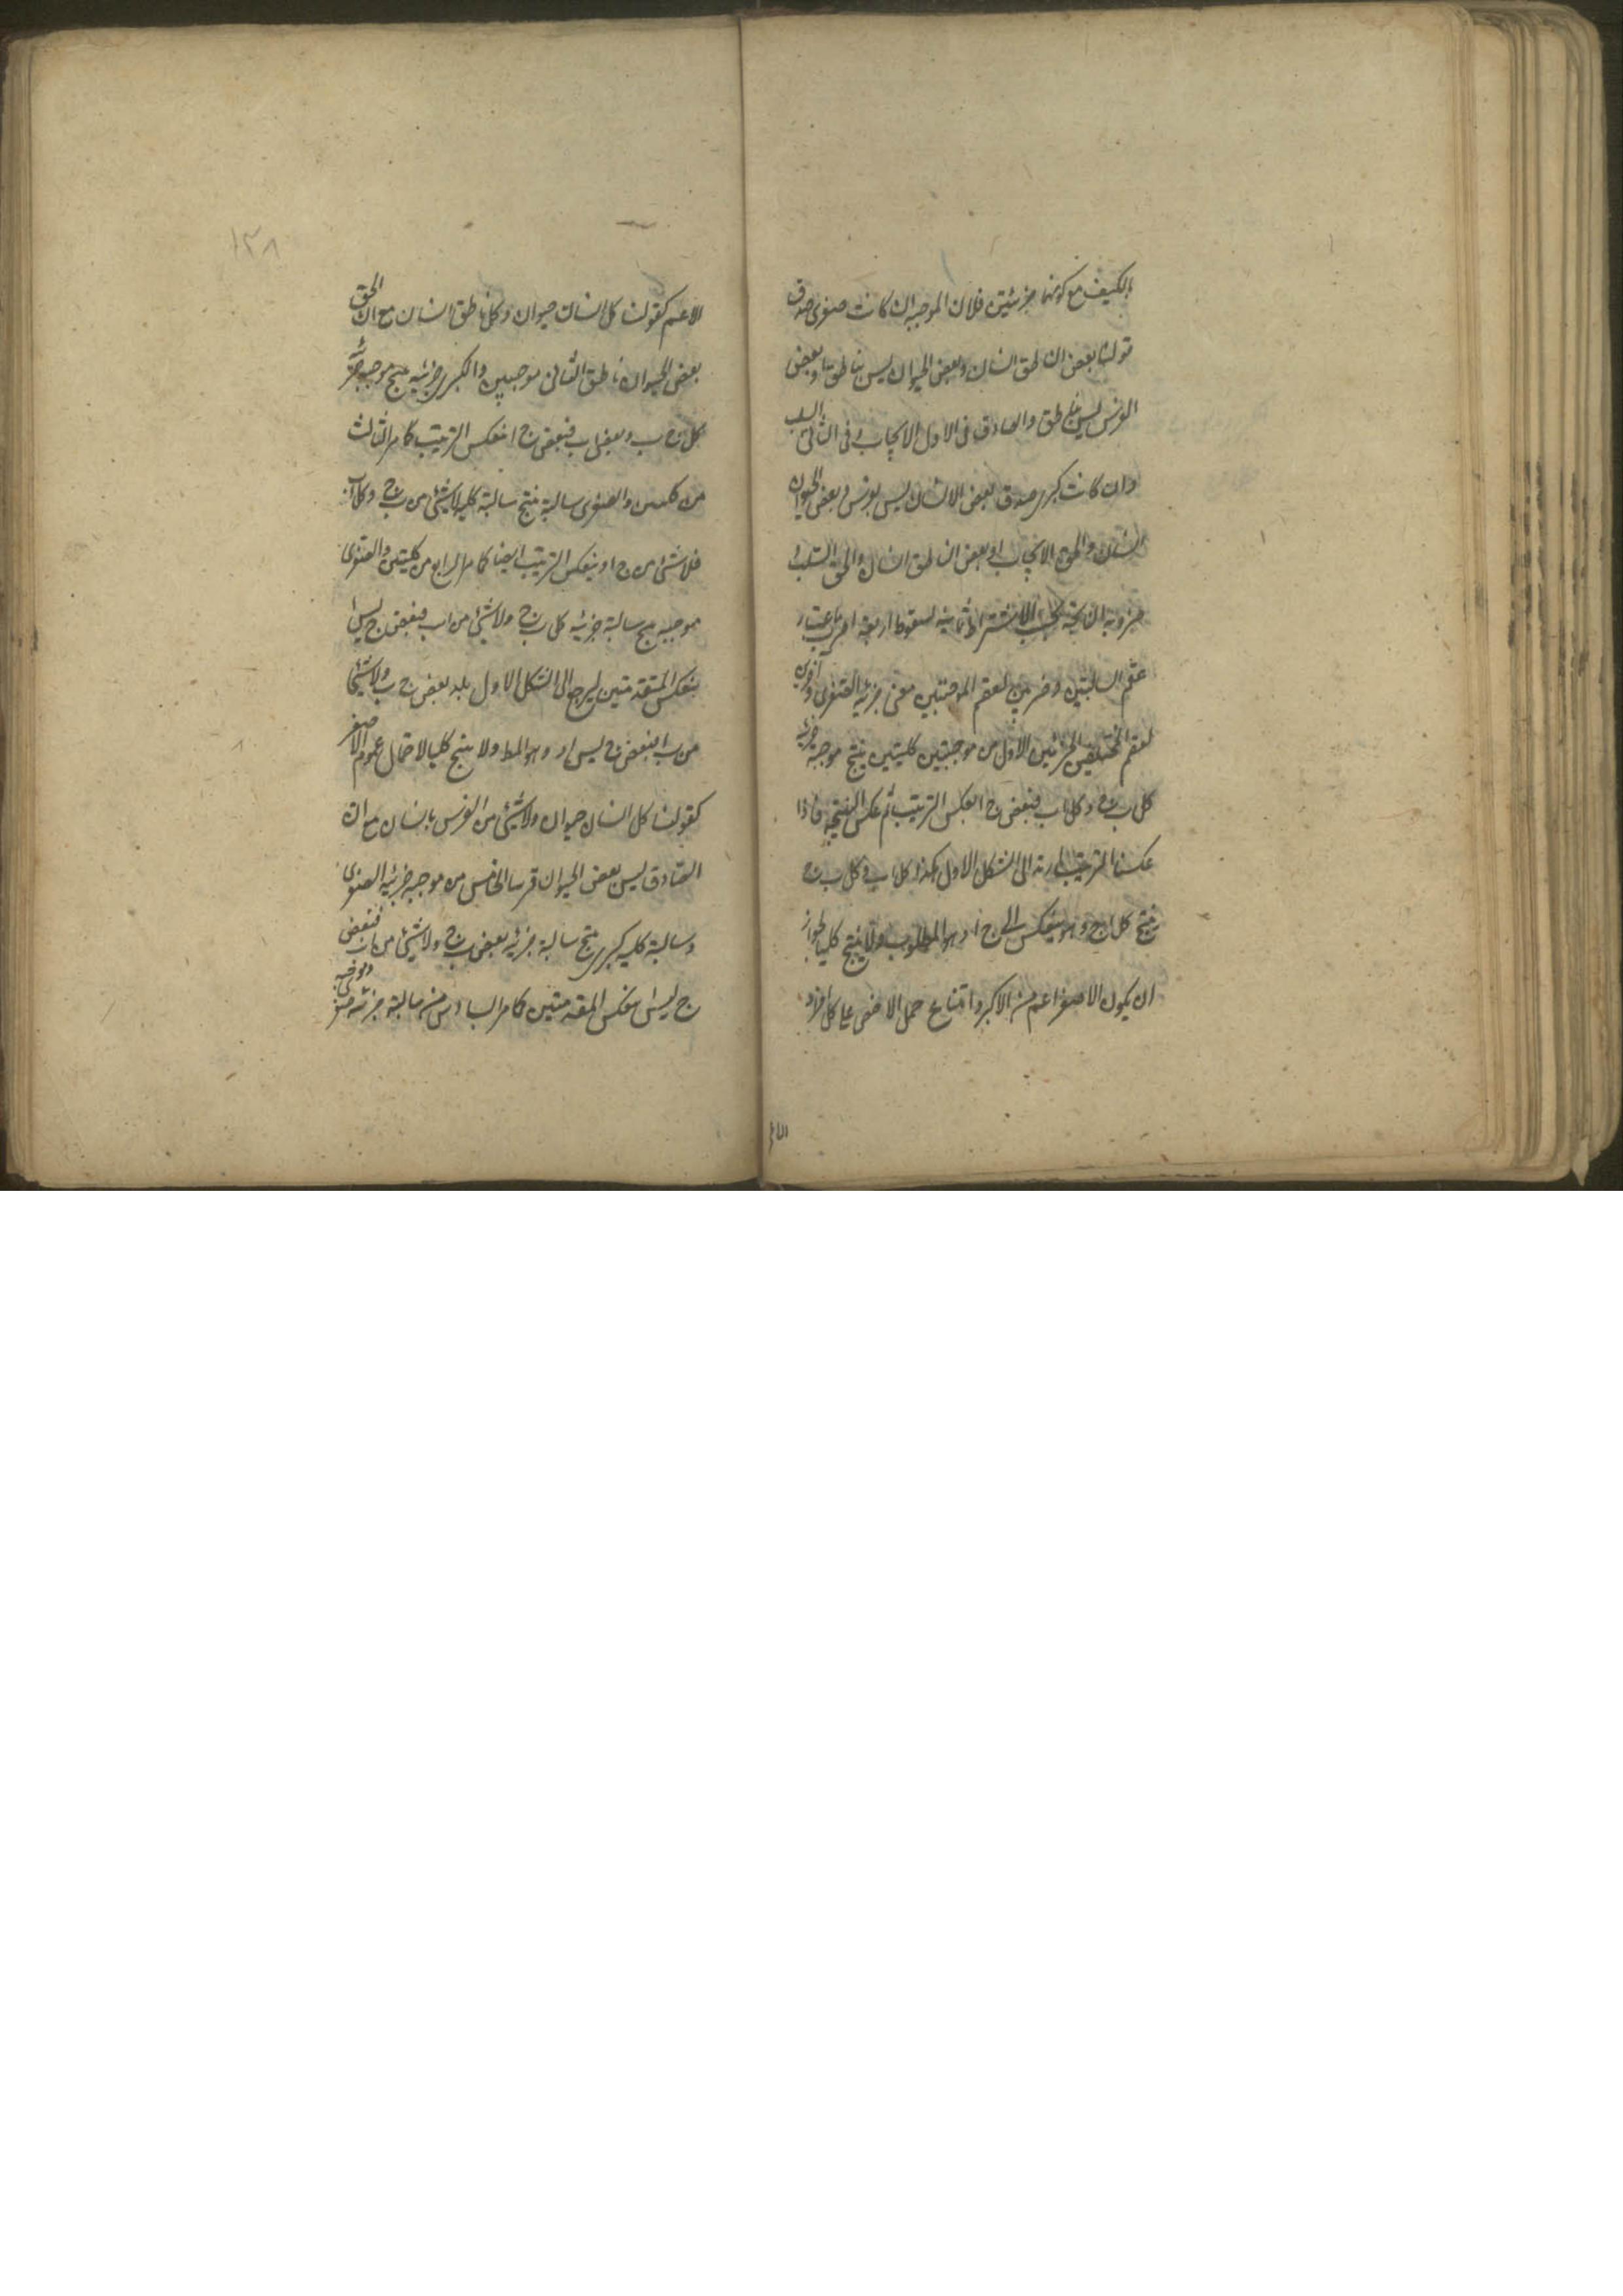 بالكيف مع كونهما جزئيتين فلان الموجبة ان كانت صغرى صدق
قولنا بعض الناطق انسان وبعض الحيوان ليس بناطق او بعض
الفرس ليس بناطق والصادق فى الاول الايجاب وفى الثانى السلب
وان كانت كبرى صدق بعض الانسان ليس بفرس وبعض الحيوان
انسان والحق الايجاب او بعض الناطق انسان والحق السلب و
ضروبه الناتجة بحسب الاشتراط ثمانية لسقوط اربعة اضرب باعتبار
عقم السالبتين وضربين لعقم الموجبتين مع جزئية الصغرى وآخرين
لعقم المختلفتين الجزئيتين الاول من موجبتين كليتين ينتج موجبة جزئية
كل ب ج وكل ا ب فبعض ج ا بعكس الترتيب ثم عكس النتيجة فاذا
عكسنا الترتيب ارتد الى الشكل الاول هكذا كل ا ب وكل ب ج
ينتج كل ا ج وهو ينعكس الى ج ا وهو المطلوب ولا ينتج كليا لجواز
ان يكون الاصغر اعم من الاكبر وامتناع حمل الاخص على كل افراد
الاعم
الاعم كقولنا كل انسان حيوان وكل ناطق انسان مع ان الحق
بعض الحيوان ناطق الثانى موجبتين والكبرى جزئية ينتج موجبة جزئية
كل ج ب وبعض ا ب فبعض ج ا بعكس الترتيب كما مر الثالث
من كليتين والصغرى سالبة ينتج سالبة كلية لا شئ من ب ج وكل ا ب
فلا شئ من ج ا وبعكس الترتيب ايضا كما مر الرابع من كليتين والصغرى
موجبة ينتج سالبة جزئية كل ب ج ولا شئ من ا ب فبعض ج ليس ا
بعكس المقدمتين ليرجع الى الشكل الاول بعض ج ب ولا شئ
من ب ا فبعض ج ليس ا وهو المط ولا ينتج كليا لاحتمال عموم الاصغر
كقولنا كل انسان حيوان ولا شئ من الفرس بانسان مع ان
الصادق ليس بعض الحيوان فرسا الخامس من موجبة جزئية الصغرى
وسالبة كلية كبرى ينتج سالبة جزئية بعض ب ج ولا شئ من ا ب فبعض
ج ليس ا بعكس المقدمتين كما مر السادس من سالبة جزئية صغرى وموجبة
١٣٨